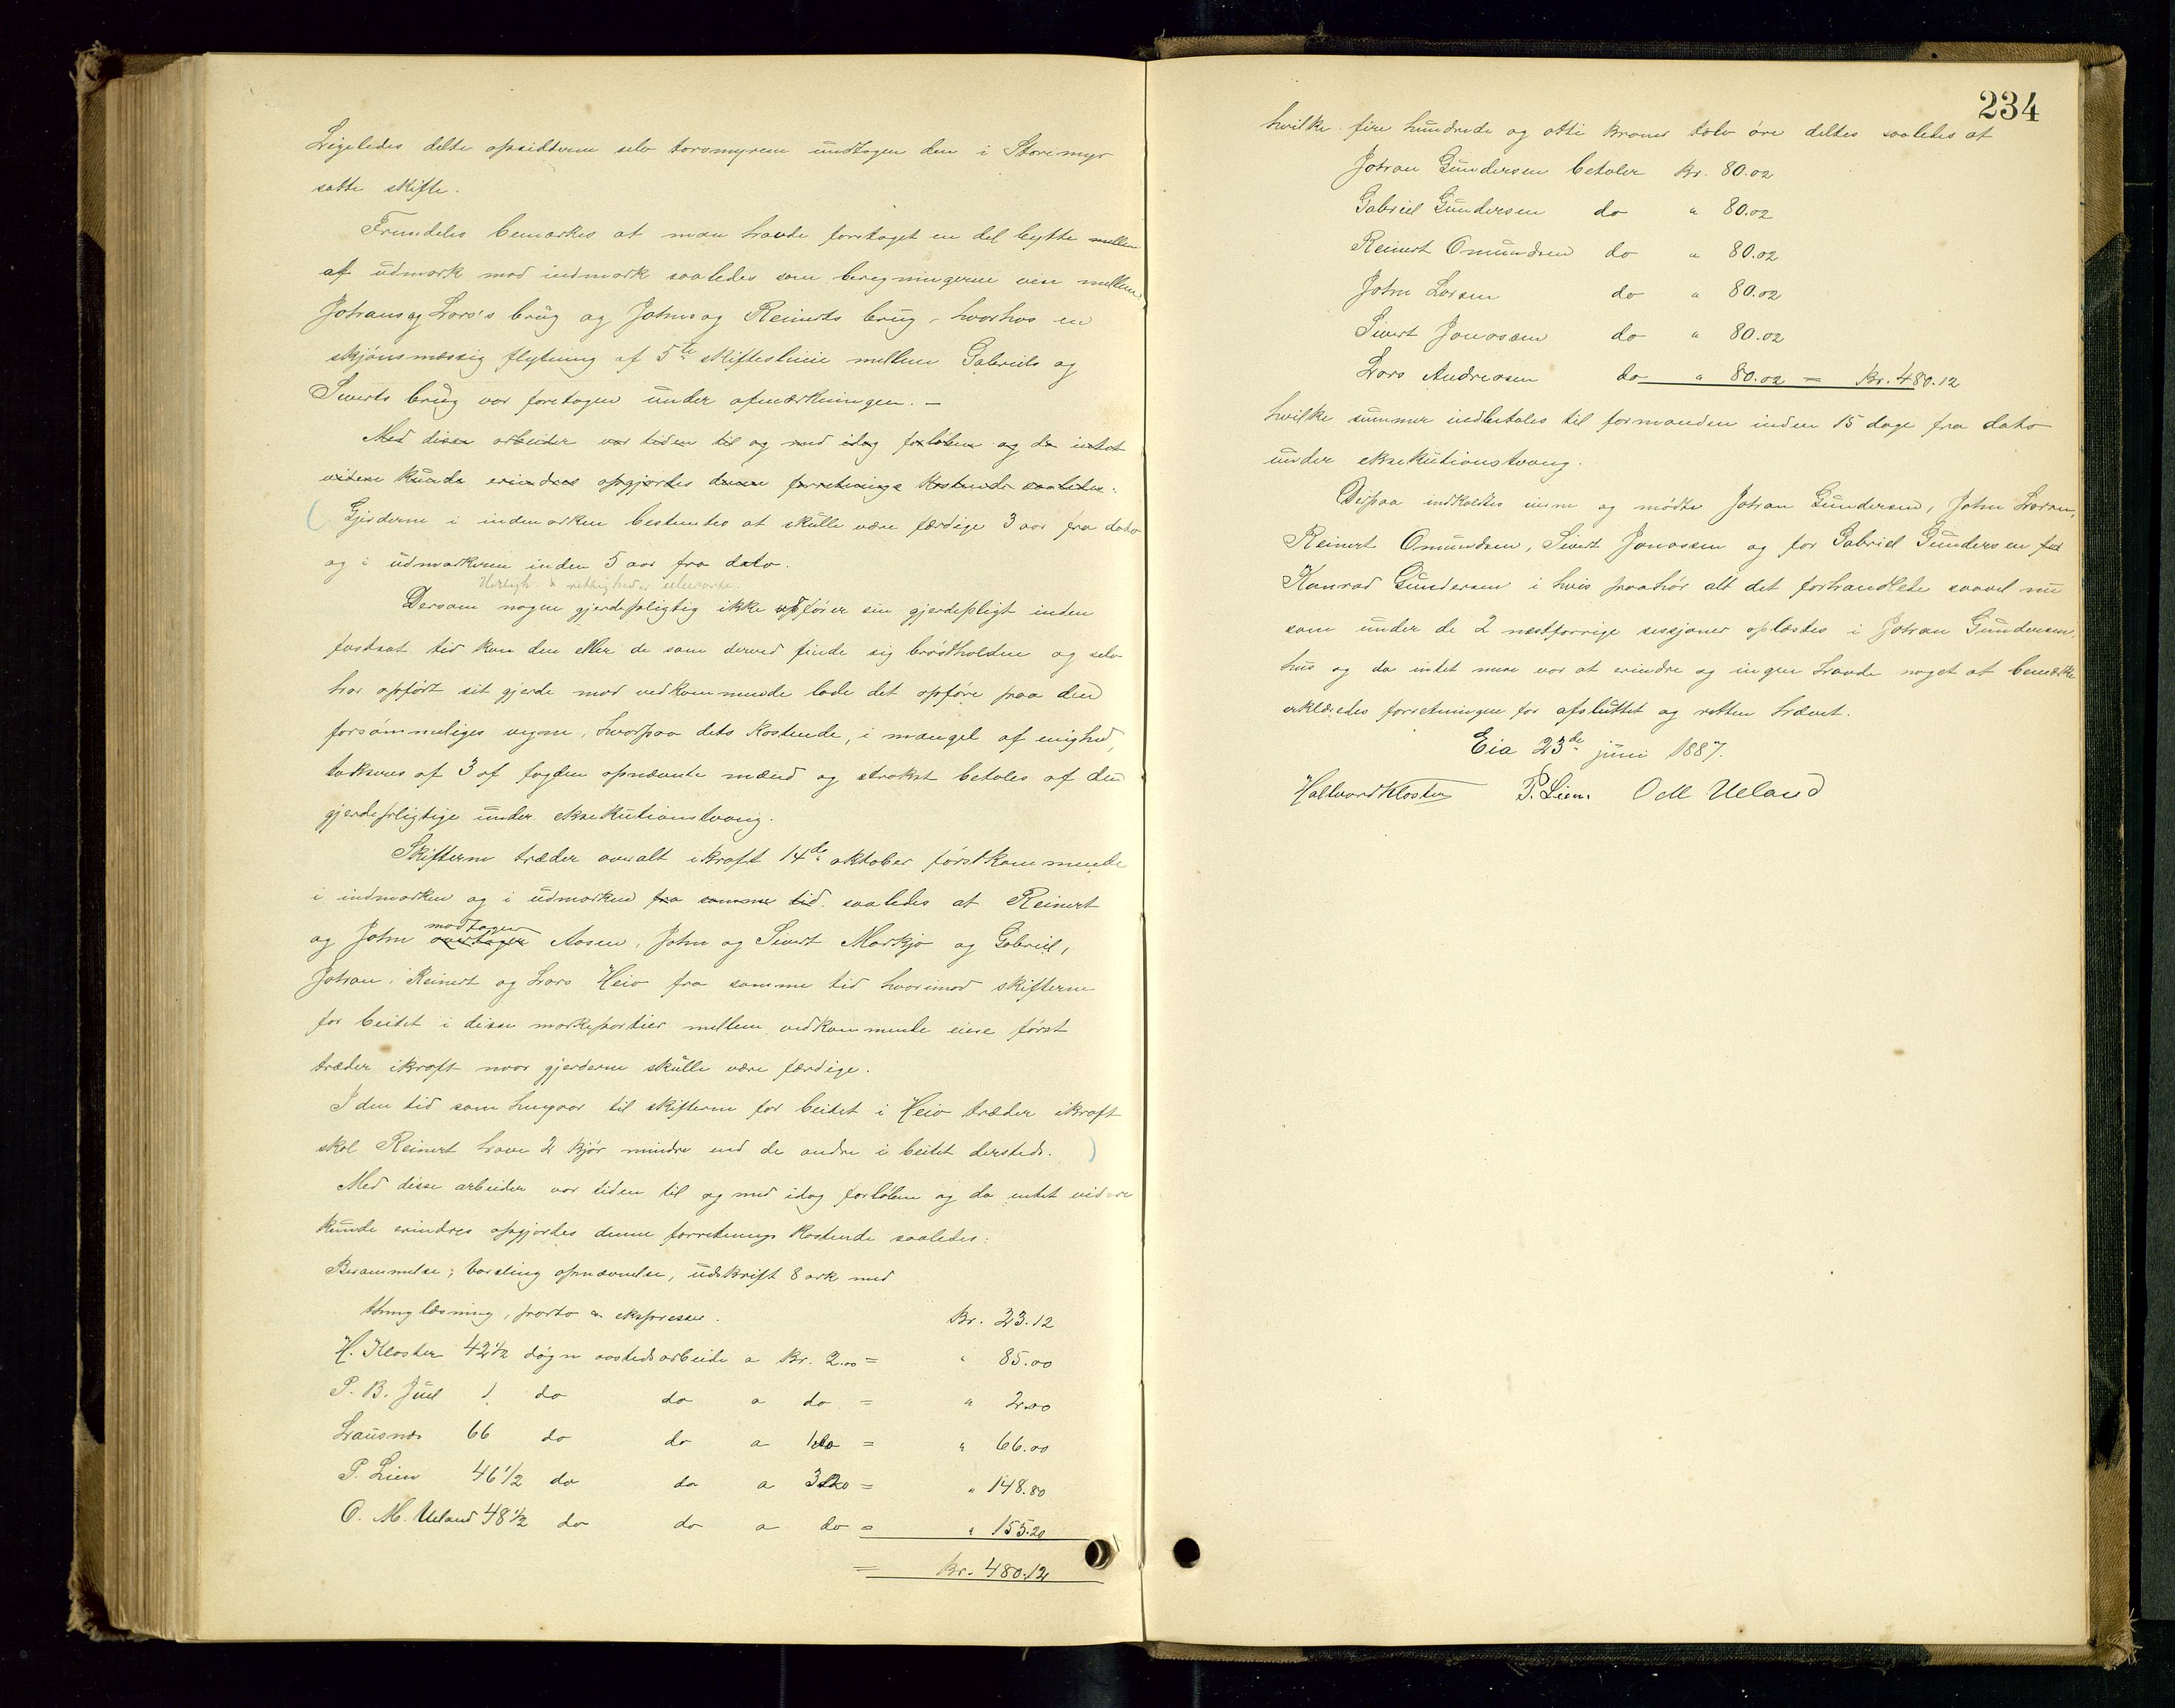 Ligeledes delte opsidderne selv torvmyrene undtagen den i Storemyr
satte skifte.
Fremdeles bemærkes at man havde foretaget en del bytte mellem
af udmark mod indmark saaledes som beregningerne viser mellem
Johans og Lars's brug og Johns og Reinerts brug, hvorhos en
skjønsmæssig flytning af 5te skifteslinie mellem Gabriels og
Siverts brug var foretagen under afmærkningen. —
Med disse arbeider var tiden til og med idag forløben og da intet
videre kunde erindres opgjordes denne forretnings kostende saaledes:
( Gjerderne i indmarken bestemtes at skulle være færdige 3 aar fra dato
og i udmarkerne inden 5 aar fra dato.
Dersom nogen gjerdepligtig ikke opfører sin gjerdepligt inden
fastsat tid kan den eller de som derved finde sig brøstholdne og selv
har opført sit gjerde mod vedkommende lade det opføre paa den
forsømmeliges vegne, hvorpaa dets kostende, i mangel af enighed,
takseres af 3 af fogden opnævnte mænd og strakst betales af den
gjerdepligtige under eksekutionstvang.
Skifterne træder overalt ikraft 14de oktober førstkommende
i indmarken og i udmarken fra samme tid. saaledes at Reinert
og John overtager modtagen Aasen, John og Sivert Markjo og Gabriel,
Johan, Reinert og Lars Heio fra samme tid hvorimod skifterne
for beitet i disse markeportier mellem vedkommende eiere først
træder ikraft naar gjerderne skulle være færdige.
I den tid som hengaar til skifterne for beitet i Heio træder ikraft
skal Reinert have 2 kjør mindre end de andre i beitet dersteds. )
Med disse arbeider var tiden til og med idag forløben og da intet videre
kunde erindres opgjordes denne forretnings kostende saaledes:
Berammelse, varsling opnævnelse, udskrift 8 ark med
thinglæsning, porto & ekspresser. Kr. 23.12
H. Kloster 42½ døgn aastedsarbeide a Kr. 2.00 = " 85.00
P. B. Juel 1 do do a do = " 2.00
Lausnes 66 do do a 1.00 = " 66.00
P. Lien 46½ do do a 3.20 = " 148.80
O. M. Ueland 48½ do do a do = " 155.20
= Kr. 480.12
234
hvilke fire hundrede og otti kroner tolv øre deltes saaledes at
Johan Gundersen betaler Kr. 80.02
Gabriel Gundersen do " 80.02
Reinert Omundsen do " 80.02
John Larsen do " 80.02
Sivert Jonassen do " 80.02
Lars Andreasen do " 80.02 = Kr. 480.12
hvilke summer indbetales til formanden inden 15 dage fra dato
under eksekutionstvang.
Derpaa indkaldtes eierne og mødte Johan Gundersen, John Larsen,
Reinert Omundsen, Sivert Jonassen og for Gabriel Gundersen for
Konrad Gundersen i hvis paahør alt det forhandlede saavel nu
som under de 2 næstforrige sessjoner oplæstes i Johan Gundersens
hus og da intet mere var at erindre og ingen havde noget at bemærke
erklæredes forretningen for afsluttet og retten hævet.
Eia 23de juni 1887.
Hallvard Kloster P. Lien. O M Ueland